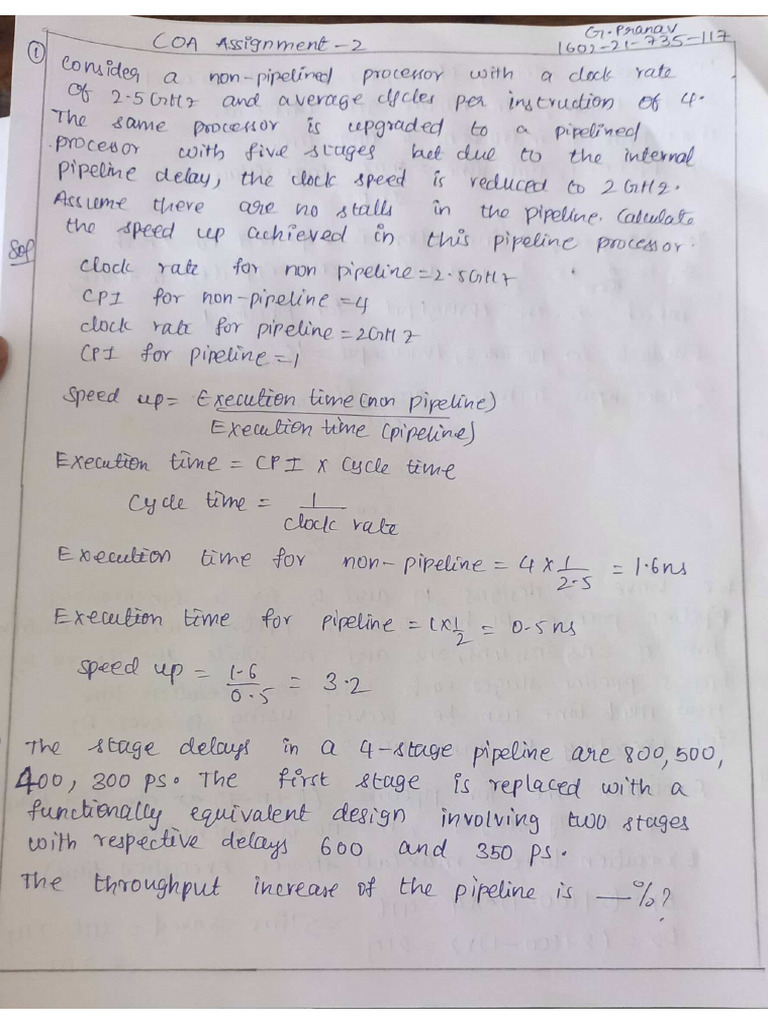 COA Assignment-2
G. Pranav
1602-21-735-117
① Consider a non-pipelined processor with a clock rate
of 2.5GHz and average cycles per instruction of 4.
The same processor is upgraded to a pipelined
processor with five stages but due to the internal
pipeline delay, the clock speed is reduced to 2GHz.
Assume there are no stalls in the pipeline. Calculate
the speed up achieved in this pipeline processor.
Sol
clock rate for non pipeline = 2.5GHz
CPI for non-pipeline = 4
clock rate for pipeline = 2GHz
CPI for pipeline = 1
Speed up = Execution time (non pipeline)
Execution time (pipeline)
Execution time = CPI x Cycle time
Cycle time = 1
clock rate
Execution time for non-pipeline = 4 x 1/2.5 = 1.6ns
Execution time for pipeline = 1x1/2 = 0.5ns
speed up = 1.6/0.5 = 3.2
The stage delays in a 4-stage pipeline are 800, 500,
400, 300 ps. The first stage is replaced with a
functionally equivalent design involving two stages
with respective delays 600 and 350 ps.
The throughput increase of the pipeline is —%?